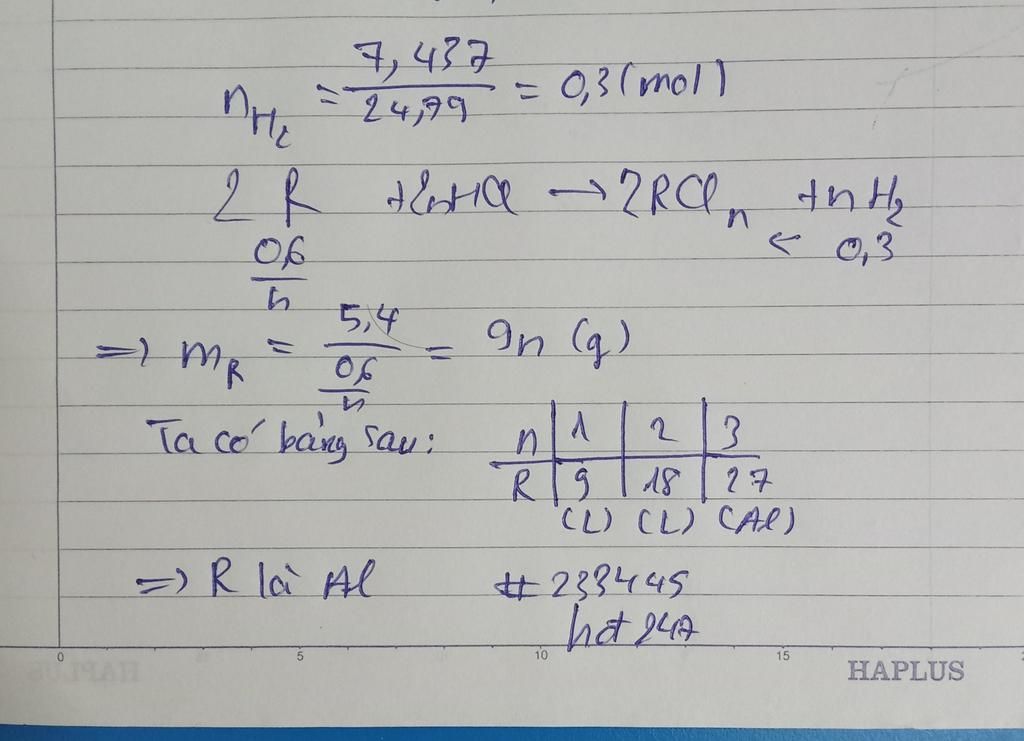 n_H₂ = 7,437 / 24,79 = 0,3 (mol)
2R + 2nHCl → 2RCl_n + nH₂
0,6/n ← 0,3
=> m_R = 5,4 / (0,6/n) = 9n (g)
Ta có bảng sau: n | 1 | 2 | 3
R | 9 | 18 | 27
(L) (L) (Al)
=> R là Al # 233445
hot 247
0 5 10 15
HAPLUS